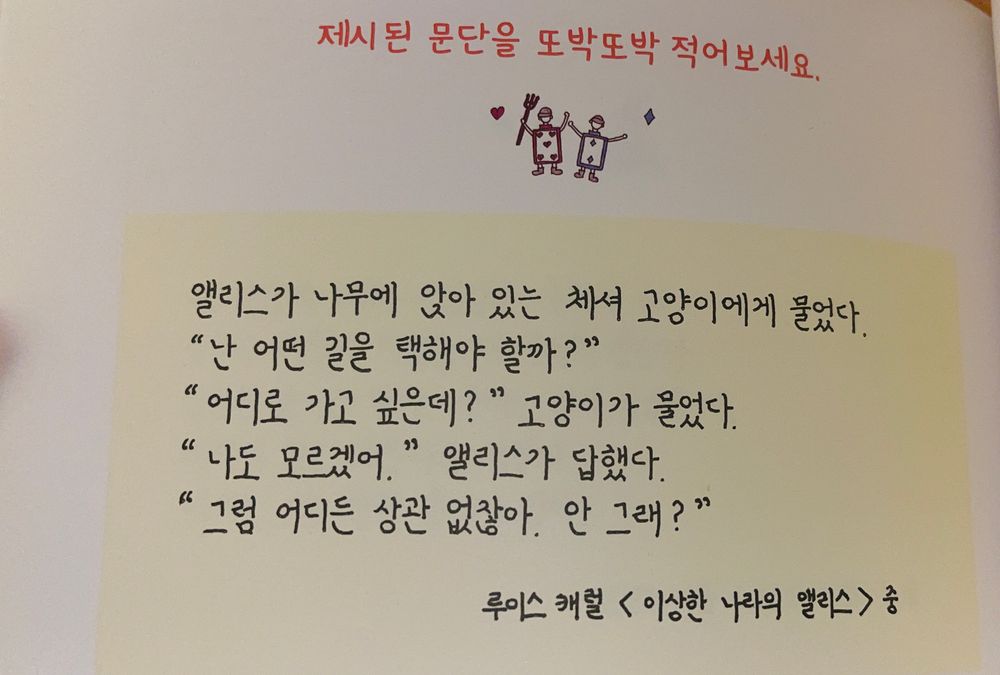 제시된 문단을 또박또박 적어보세요.
앨리스가 나무에 앉아 있는 체셔 고양이에게 물었다.
“난 어떤 길을 택해야 할까?”
“어디로 가고 싶은데?” 고양이가 물었다.
“나도 모르겠어.” 앨리스가 답했다.
“그럼 어디든 상관 없잖아. 안 그래?”
루이스 캐럴 <이상한 나라의 앨리스> 중